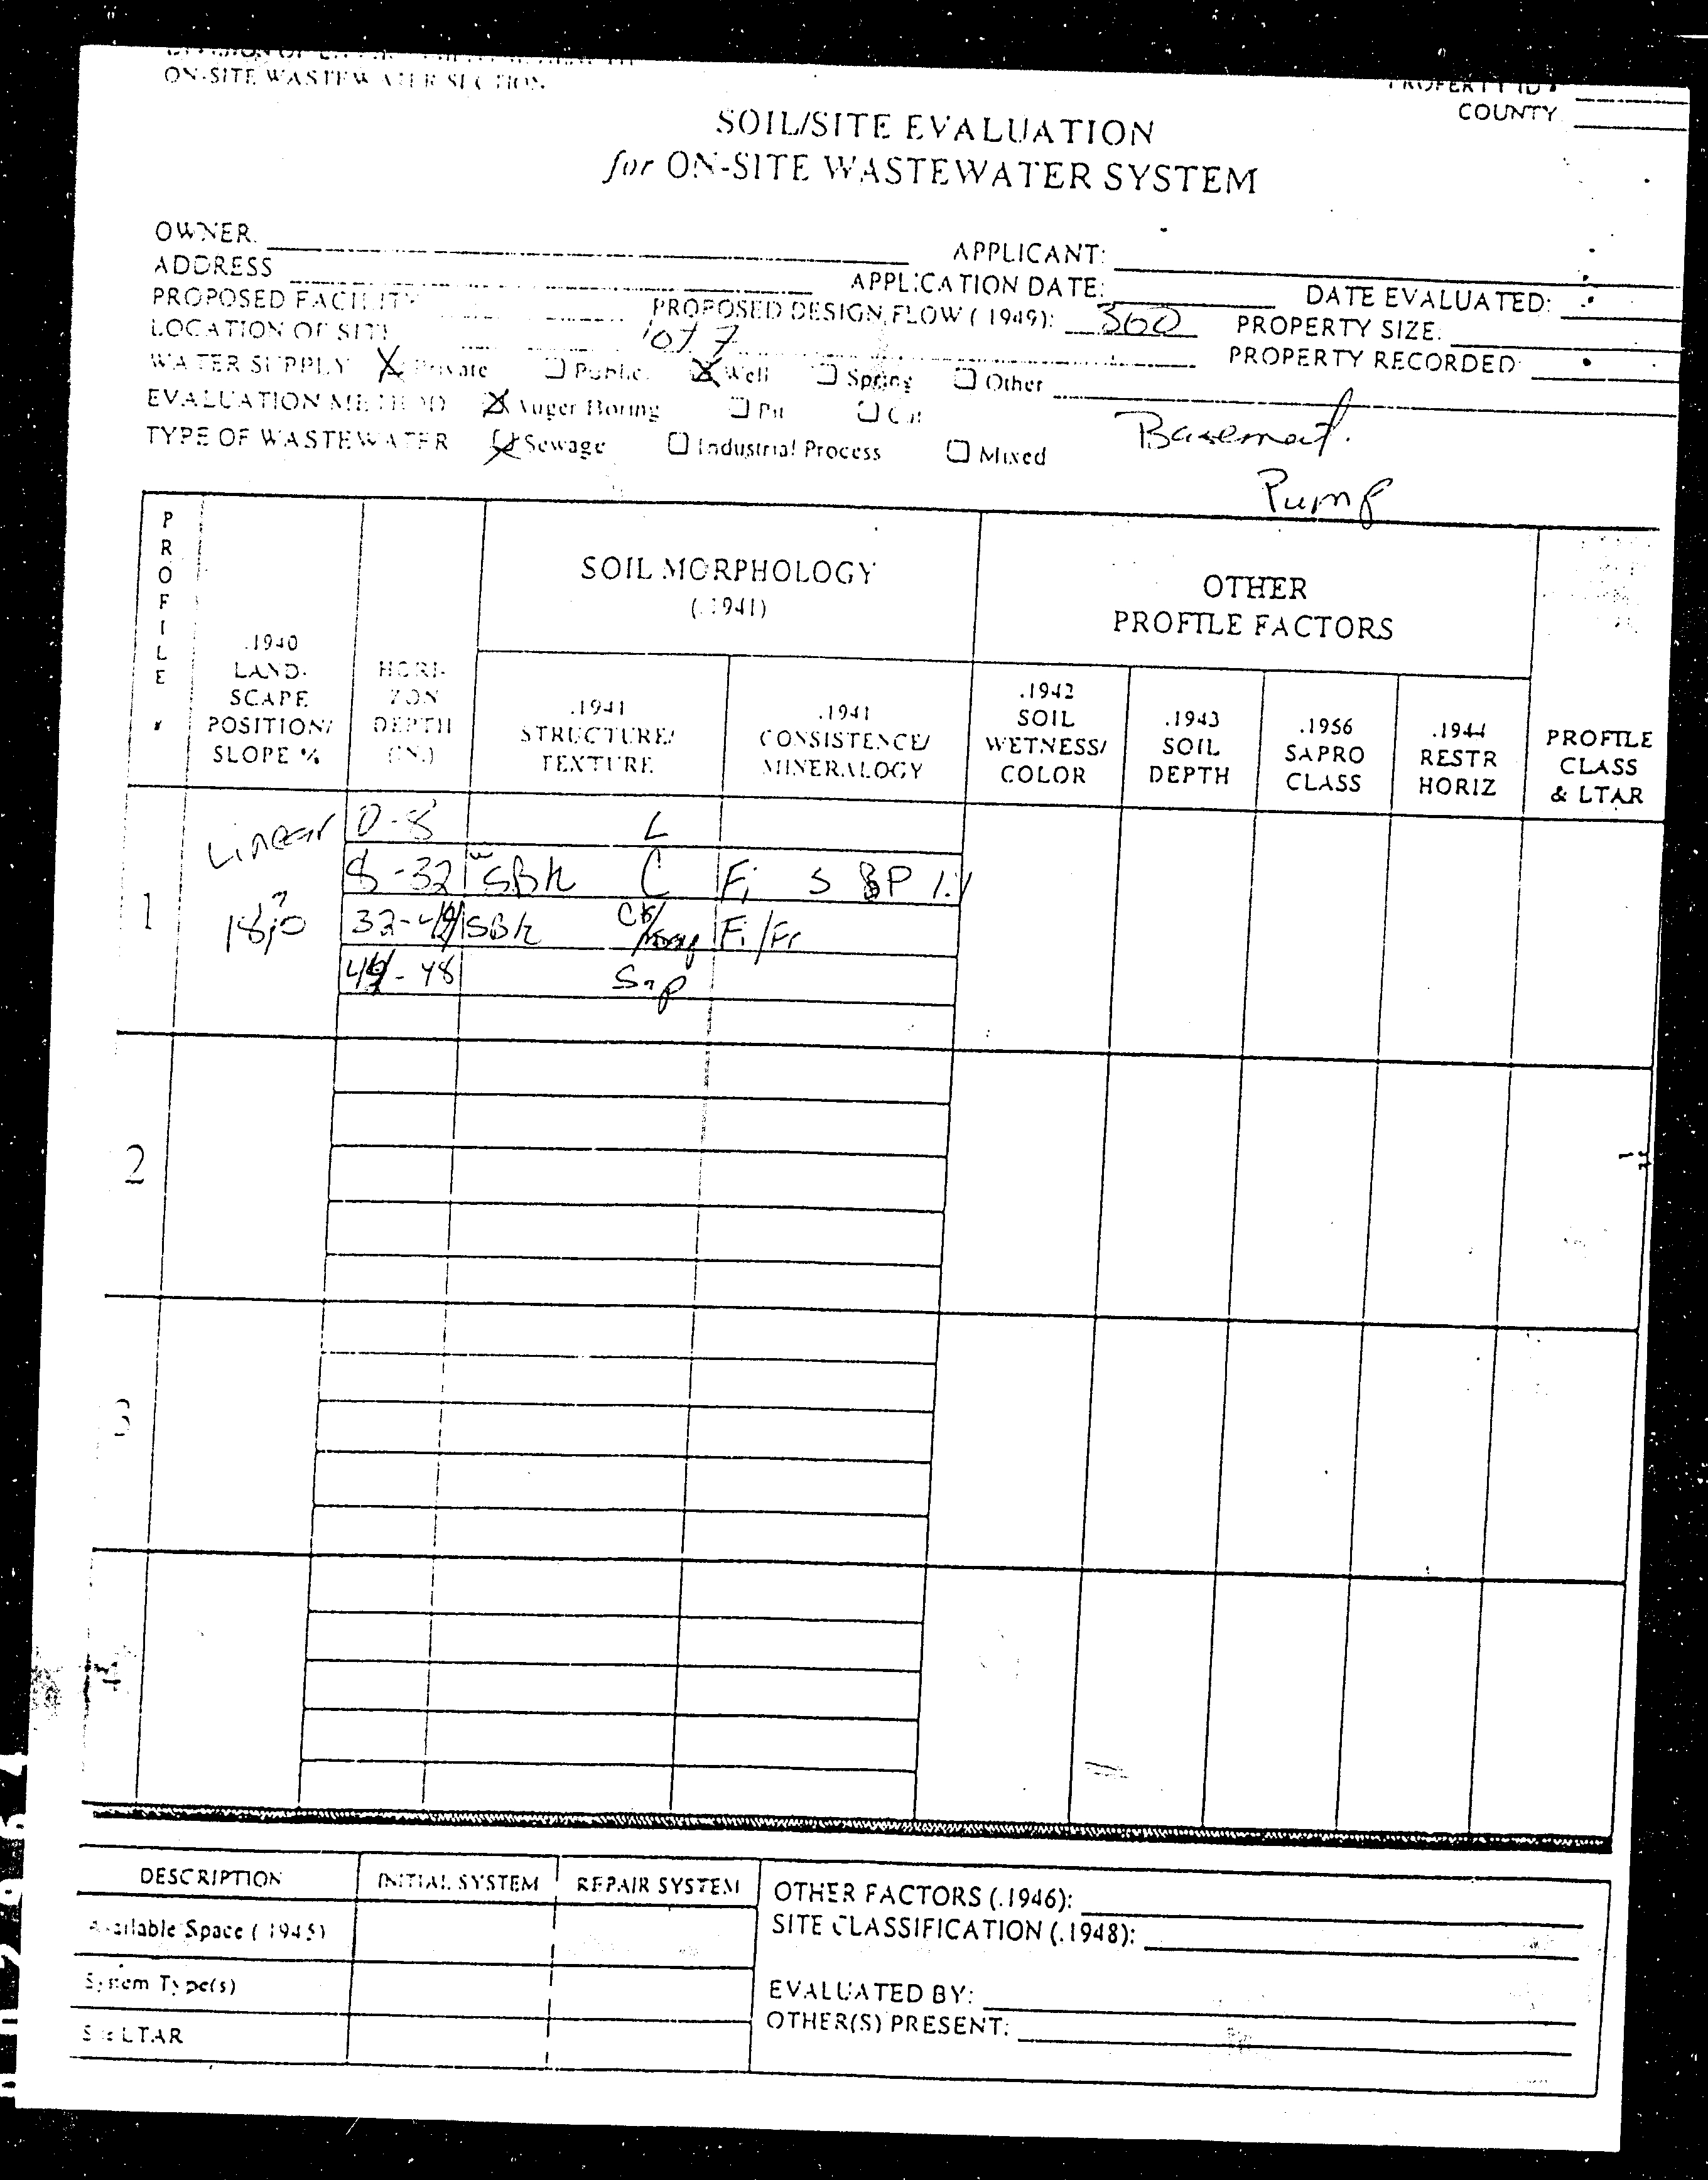 ON-SITE WASTEWATER SECTION
PROPERTY ID #
COUNTY
SOIL/SITE EVALUATION
for ON-SITE WASTEWATER SYSTEM
OWNER:
APPLICANT:
ADDRESS
APPLICATION DATE:
DATE EVALUATED:
PROPOSED FACILITY
PROPOSED DESIGN FLOW (.1949): 360
PROPERTY SIZE:
LOCATION OF SITE lot 7
PROPERTY RECORDED:
WATER SUPPLY X Private Public X Well Spring Other
EVALUATION METHOD X Auger Boring Pit Cut
TYPE OF WASTEWATER X Sewage Industrial Process Mixed
Basement.
Pump
PROFILE #
.1940 LAND-SCAPE POSITION/ SLOPE %
HORI-ZON DEPTH (IN.)
SOIL MORPHOLOGY (.1941)
.1941 STRUCTURE/ TEXTURE
.1941 CONSISTENCE/ MINERALOGY
OTHER PROFILE FACTORS
.1942 SOIL WETNESS/ COLOR
.1943 SOIL DEPTH
.1956 SAPRO CLASS
.1944 RESTR HORIZ
PROFILE CLASS & LTAR
1
Linear
0-8 L
8-32 w SBK C Fi S P 1:1
32- SBK Fi/Fr
-48 Sap
2
3
4
DESCRIPTION INITIAL SYSTEM REPAIR SYSTEM
Available Space (.1945)
System Type(s)
Site LTAR
OTHER FACTORS (.1946):
SITE CLASSIFICATION (.1948):
EVALUATED BY:
OTHER(S) PRESENT: